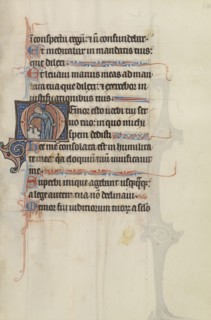 in conspectu regum: et non confundebar.
Et meditabar in mandatis tuis:
que dilexi
Et levavi manus meas ad man
data tua que dilexi: et exercebor in
iustificationibus tuis
Memor esto verbi tui ser
vo tuo: in quo michi
spem dedisti
Hec me consolata est in humilita
te mea: quia eloquium tuum vivificavit
me
Superbi inique agebant usquequaque:
a lege autem tua non declinavi
Memor fui iudiciorum tuorum a seculo